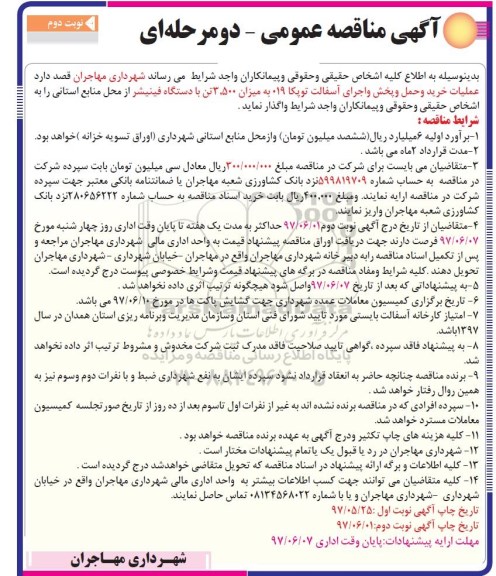 نوبت دوم
آگهی مناقصه عمومی - دومرحله‌ای
بدینوسیله به اطلاع کلیه اشخاص حقیقی وحقوقی وپیمانکاران واجد شرایط می رساند شهرداری مهاجران قصد دارد
عملیات خرید وحمل وپخش واجرای آسفالت توپکا ۰۱۹ به میزان ۳،۵۰۰تن با دستگاه فینیشر از محل منابع استانی را به
اشخاص حقیقی وحقوقی وپیمانکاران واجد شرایط واگذار نماید .
شرایط مناقصه :
۱-برآورد اولیه ۶میلیارد ریال(ششصد میلیون تومان) وازمحل منابع استانی شهرداری (اوراق تسویه خزانه )خواهد بود.
۲-مدت قرارداد ۲ماه می باشد .
۳-متقاضیان می بایست برای شرکت در مناقصه مبلغ ۳۰۰/۰۰۰/۰۰۰ریال معادل سی میلیون تومان بابت سپرده شرکت
در مناقصه به حساب شماره ۵۹۹۸۱۹۷۰۹نزد بانک کشاورزی شعبه مهاجران یا ضمانتنامه بانکی معتبر جهت سپرده
شرکت در مناقصه ارایه نمایند. ومبلغ ۴۰۰،۰۰۰ریال بابت خرید اسناد مناقصه به حساب شماره ۲۸۰۶۵۶۲۲۲نزد بانک
کشاورزی شعبه مهاجران واریز نمایند.
۴-متقاضیان از تاریخ درج آگهی نوبت دوم۹۷/۰۶/۰۱ حداکثر به مدت یک هفته تا پایان وقت اداری روز چهار شنبه مورخ
۹۷/۰۶/۰۷ فرصت دارند جهت دریافت اوراق مناقصه پیشنهاد قیمت به واحد اداری مالی شهرداری مهاجران مراجعه و
پس از تکمیل اسناد مناقصه رابه دبیر خانه شهرداری مهاجران واقع در مهاجران -خیابان شهرداری -شهرداری مهاجران
تحویل دهند .کلیه شرایط ومفاد مناقصه در برگه های پیشنهاد قیمت وشرایط خصوصی پیوست درج گردیده است.
۵-به پیشنهاداتی که بعد از تاریخ ۹۷/۰۶/۰۷واصل شود هیچگونه ترتیب اثری داده نخواهد شد .
۶- تاریخ برگزاری کمیسیون معاملات عمده شهرداری جهت گشایش پاکت ها در مورخ ۹۷/۰۶/۱۰ می باشد.
۷- امتیاز کارخانه آسفالت بایستی مورد تایید شورای فنی استان وسازمان مدیریت وبرنامه ریزی استان همدان در سال
۱۳۹۷باشد.
۸- به پیشنهاد فاقد سپرده ،گواهی تایید صلاحیت فاقد مدرک ثبت شرکت مخدوش و مشروط ترتیب اثر داده نخواهد
شد.
۹- برنده مناقصه چنانچه حاضر به انعقاد قرارداد نشود سپرده ایشان به نفع شهرداری ضبط و با نفرات دوم وسوم نیز به
همین روال رفتار خواهد شد .
۱۰- سپرده افرادی که در مناقصه برنده نشده اند به غیر از نفرات اول تاسوم بعد از ده روز از تاریخ صورتجلسه کمیسیون
معاملات مسترد خواهد شد.
۱۱- کلیه هزینه های چاپ تکثیر ودرج آگهی به عهده برنده مناقصه خواهد بود .
۱۲- شهرداری مهاجران در رد یا قبول یک یاتمام پیشنهادات مختار است .
۱۳- کلیه اطلاعات و برگه ارائه پیشنهاد در اسناد مناقصه که تحویل متقاضی خواهدشد درج گردیده است .
۱۴- کلیه متقاضیان می توانند جهت کسب اطلاعات بیشتر به واحد اداری مالی شهرداری مهاجران واقع در خیابان
شهرداری -شهرداری مهاجران و یا با شماره ۰۸۱۳۴۵۶۸۰۲۲ تماس حاصل نمایند.
تاریخ چاپ آگهی نوبت اول :۹۷/۰۵/۲۵
تاریخ چاپ آگهی نوبت دوم:۹۷/۰۶/۰۱
مهلت ارایه پیشنهادات:پایان وقت اداری ۹۷/۰۶/۰۷
شهـرداری مهـاجران